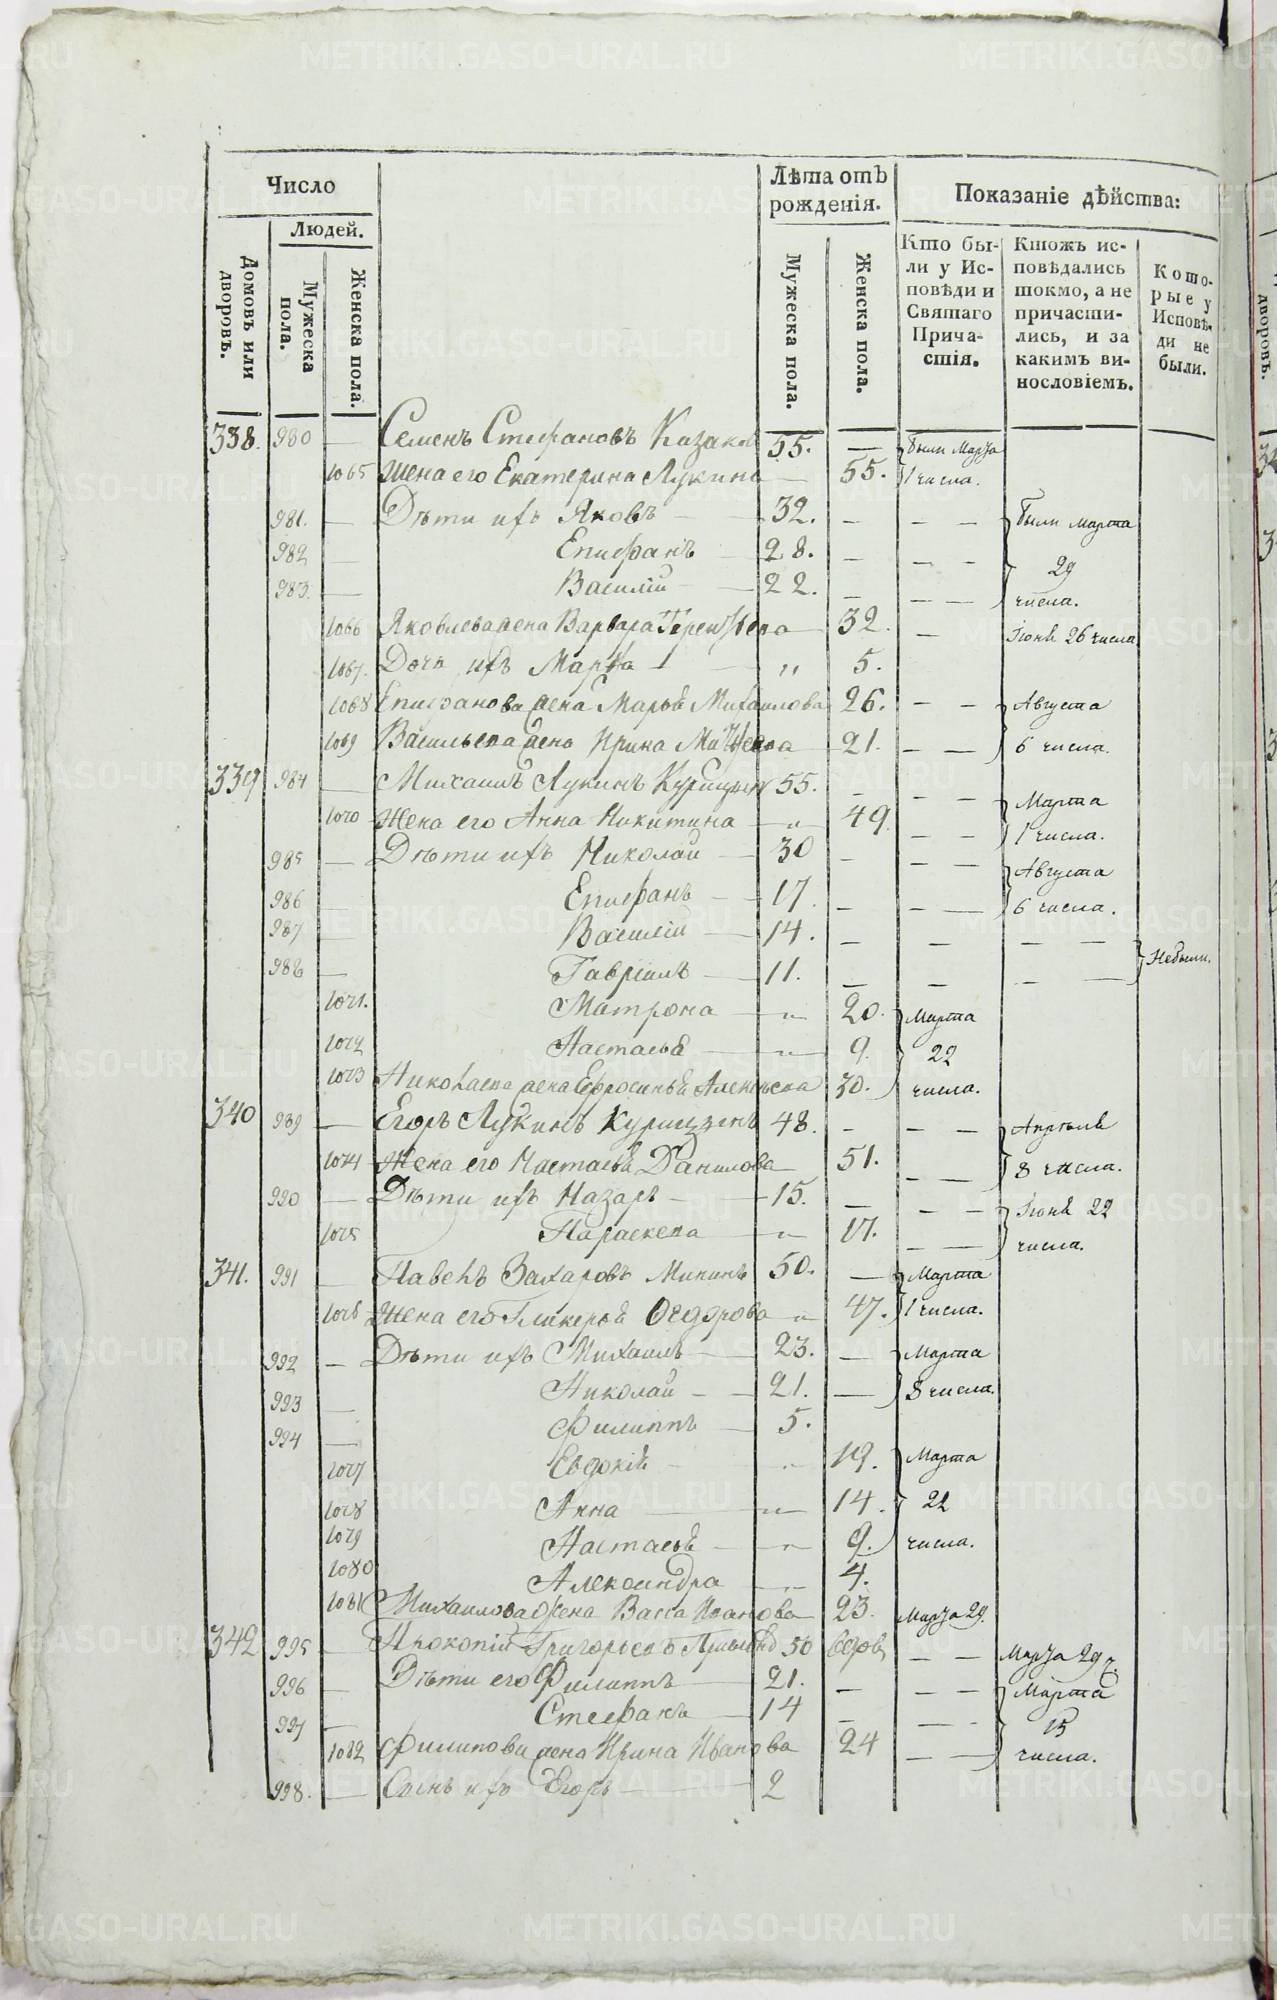 Число
Лѣта отъ рожденія.
Показаніе дѣйства:
Людей.
Домовъ или дворовъ.
Мужеска пола.
Женска пола.
Мужеска пола.
Женска пола.
Кто были у Исповѣди и Святаго Причастія.
Ктожъ исповѣдались токмо, а не причастились, и за какимъ винословіемъ.
Которые у Исповѣди не были.
338. 980 — Семенъ Стефановъ Казаков 55. — были Марта
1065 Жена его Екатерина Лукина — 55. 1 числа.
981. — Дѣти ихъ Яковъ — 32. — — — были марта
982 — Епифанъ — 28. — — — 29
983. — Василій — 22. — — — числа.
1066 Яковлева жена Варвара Терентьева 32. — Іюня 26 числа
1067. Дочь ихъ Марфа — „ 5.
1068 Епифанова жена Марья Михаилова 26. — — Августа
1069 Васильева жена Ирина Матвеева 21. — — 6 числа.
339 984 — Михаилъ Лукинъ Курицын 55. — — — Марта
1070 Жена его Анна Никитина — „ 49 — — 1 числа.
985 — Дѣти ихъ Николай — 30 — — — Августа
986 — Епифанъ — 17. — — — 6 числа.
987 — Василій — 14. — — — — Небыли.
988 — Гавріилъ — 11. — — — —
1071. Матрона — „ 20. Марта
1072 Настасья — „ 9. 22
1073 Николаева жена Ефросинья Алексѣева 30. числа.
340 989 — Егоръ Лукинъ Курицынъ 48. — — — Апрѣля
1074 Жена его Настасья Данилова — 51. — — 8 числа.
990 — Дѣти ихъ Назаръ — 15. — — — Іюня 22
1075 Параскева — „ 17. — — числа.
341. 991 — Павелъ Захаровъ Мининъ 50. — Марта
1076 Жена его Гликерья Ѳедорова — „ 47. 1 числа.
992 — Дѣти ихъ Михаилъ — 23. — Марта
993 — Николай — 21. — 8 числа.
994 — Филиппъ — 5.
1077 Евдокія — „ 19. Марта
1078 Анна — „ 14. 22
1079 Настасья — „ 9. числа.
1080 Александра — „ 4.
1081 Михаилова жена Васса Иванова — 23. Марта 29.
342 995 — Прокопій Григорьевъ 50 вдов. — — Марта 29 ч.
996 — Дѣти его Филиппъ — 21. — — — Марта
997 — Стефанъ — 14 — — — 15
1082 Филипова жена Ирина Иванова 24 — — числа.
998. — Сынъ ихъ Егоръ — 2